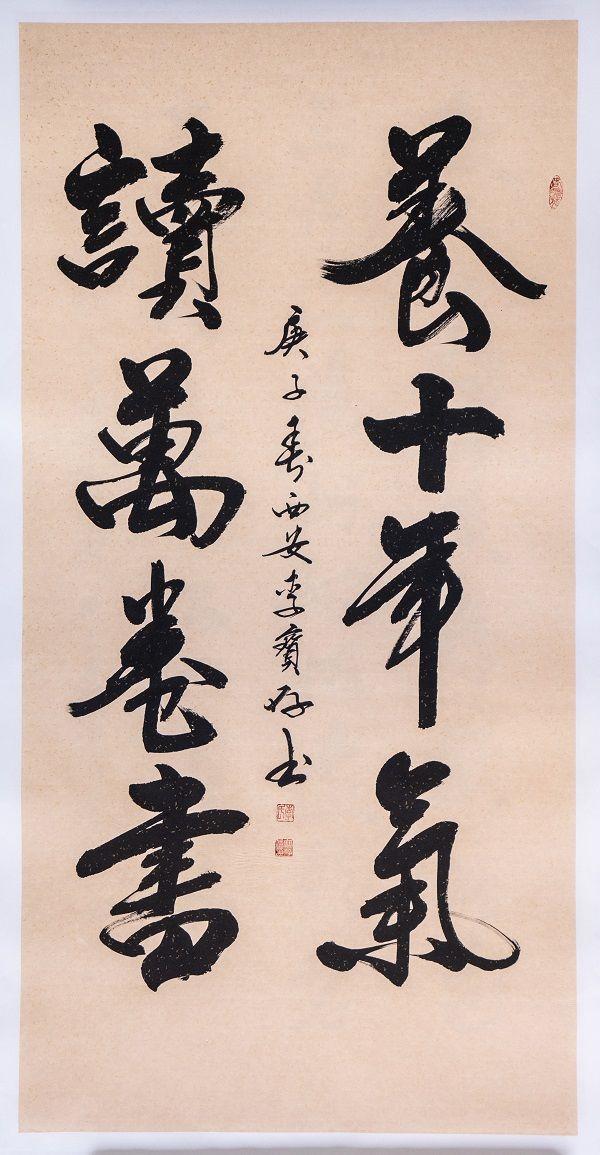 養十年氣
讀萬卷書
庚子春西安李寶存書